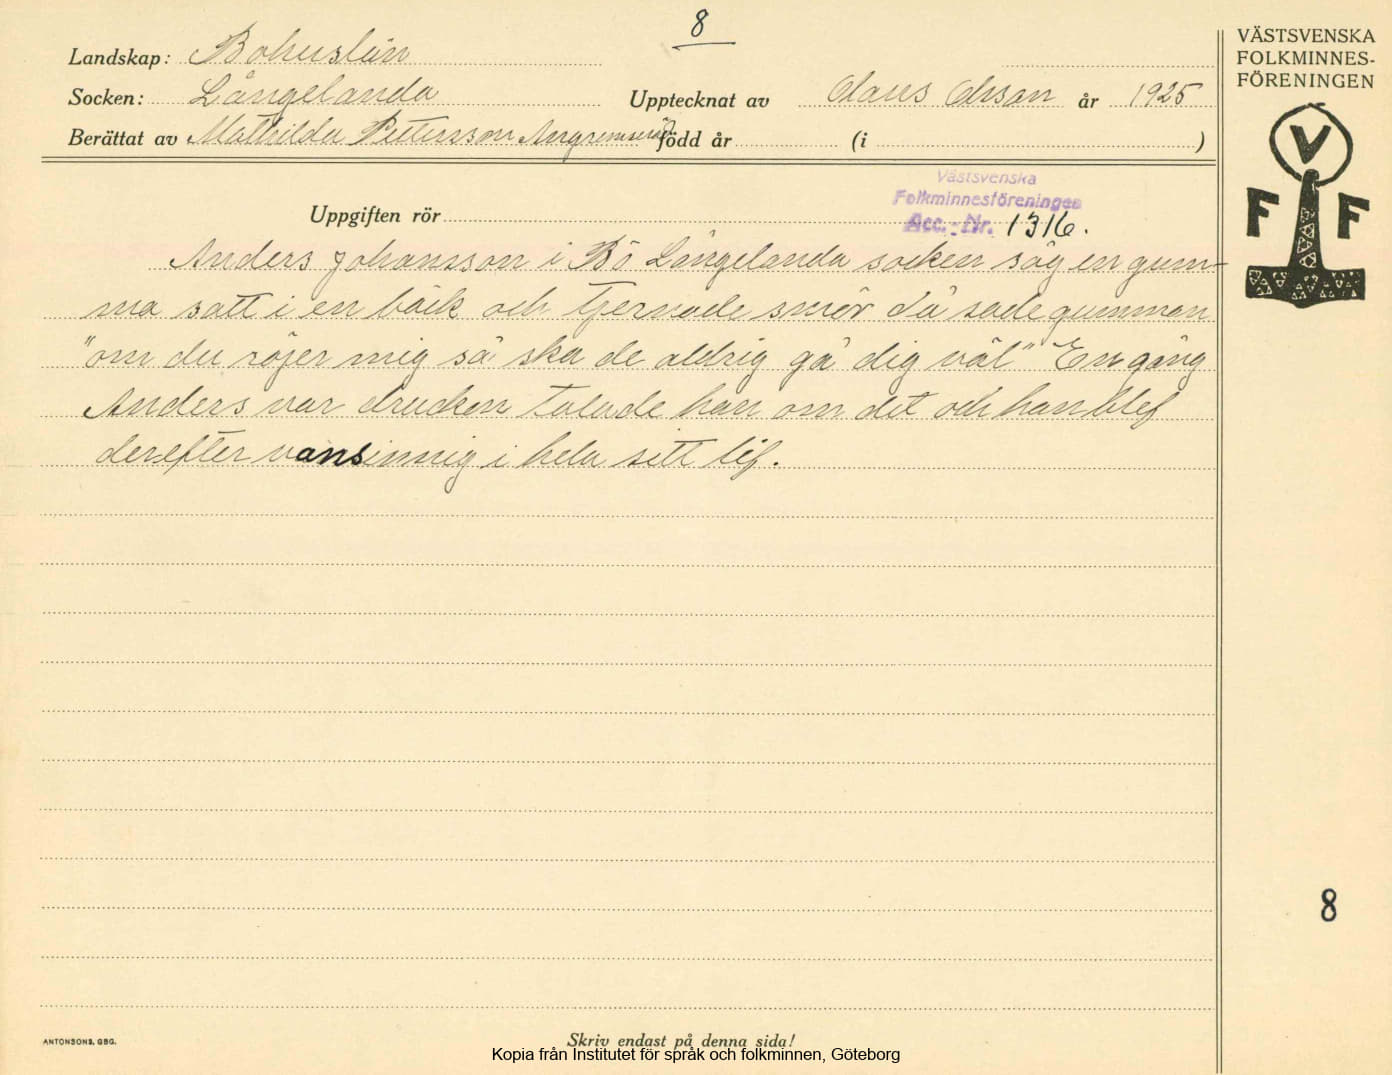 8
Landskap: Bohuslän
Socken: Långelanda
Upptecknat av Olaus Olsson år 1925
Berättat av Mathilda Pettersson Angremseröd född år (i )
VÄSTSVENSKA
FOLKMINNES-
FÖRENINGEN
V
F F
Västsvenska
Folkminnesföreningen
Acc. - Nr. 1316.
Uppgiften rör
Anders Johansson i Bö Långelanda socken såg en gum-
ma satt i en bäck och tjernade smör då sade gumman
"om du röjer mig så ska de aldrig gå dig väl" En gång
Anders var drucken talade han om det och han blef
derefter vansinnig i hela sitt lif.
8
ANTONSONS, GBG.
Skriv endast på denna sida!
Kopia från Institutet för språk och folkminnen, Göteborg